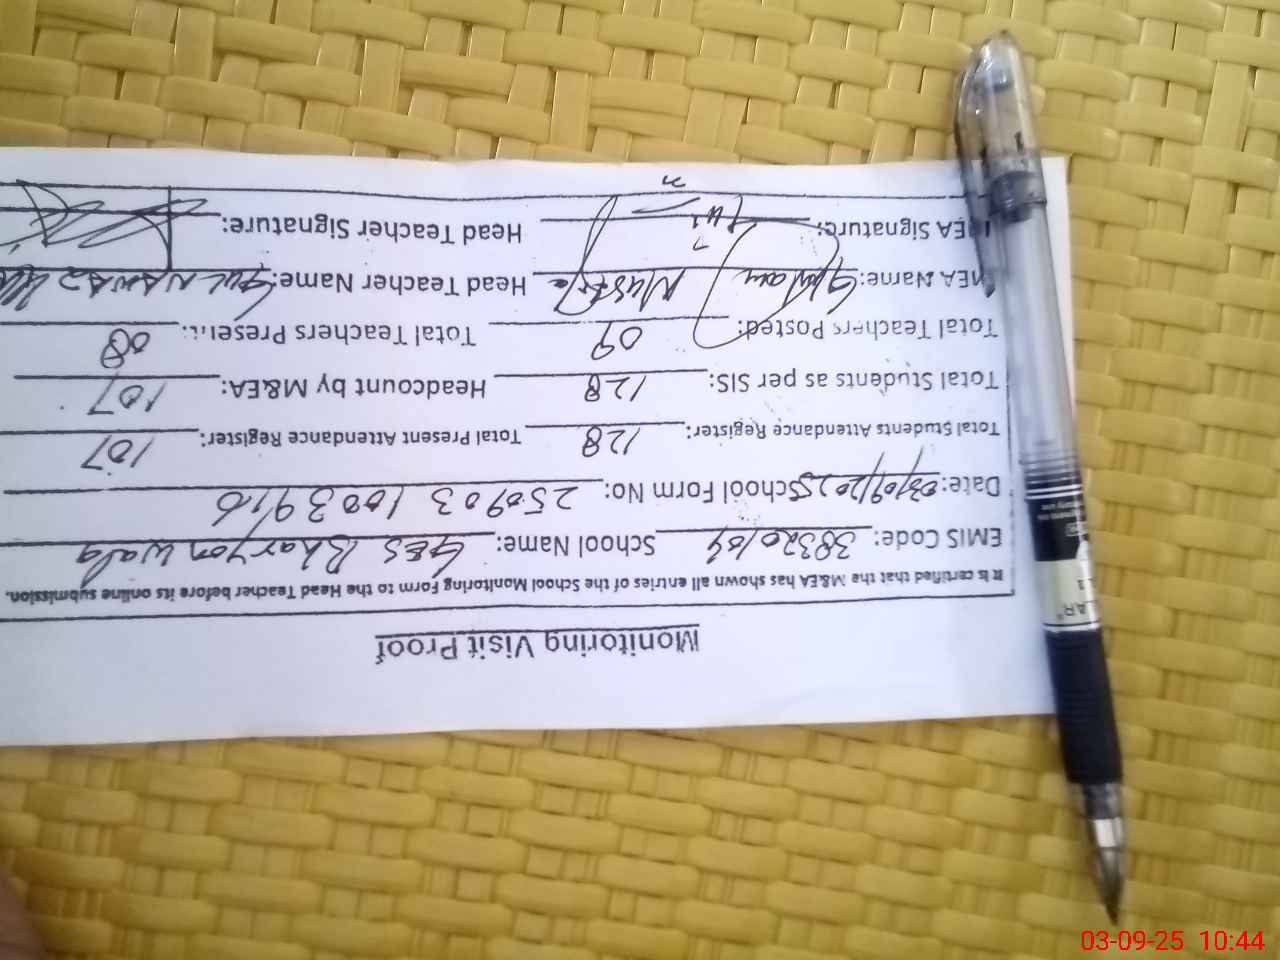 Monitoring Visit Proof
It is certified that the M&EA has shown all entries of the School Monitoring Form to the Head Teacher before its online submission.
EMIS Code: 38320164 School Name: GES Bharyon wala
Date: 03/09/2025 School Form No: 250903 1003916
Total Students Attendance Register: 128 Total Present Attendance Register: 107
Total Students as per SIS: 128 Headcount by M&EA: 107
Total Teachers Posted: 09 Total Teachers Present: 08
MEA Name: Mustafa Head Teacher Name: Gul Nawaz
MEA Signature: Head Teacher Signature:
03-09-25 10:44